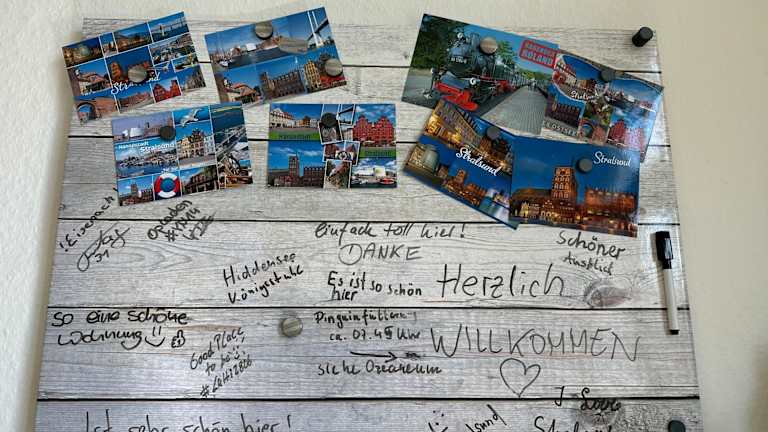 Stralsund
HANSESTADT
Stralsund
Hansestadt
Stralsund
RASENDER
ROLAND
OSTSEE
Stralsund
Stralsund
! Eisenach !
31
einfach toll hier!
DANKE
Schöner
Ausblick
Hiddensee
Königsstuhl
Es ist so schön
hier
Herzlich
So eine schöne
Wohnung!!
Good Place
to be
Pinguinfütterung
ca. 07.45 Uhr
siehe Ozeaneum
WILLKOMMEN
I Love
Ist sehr schön hier!